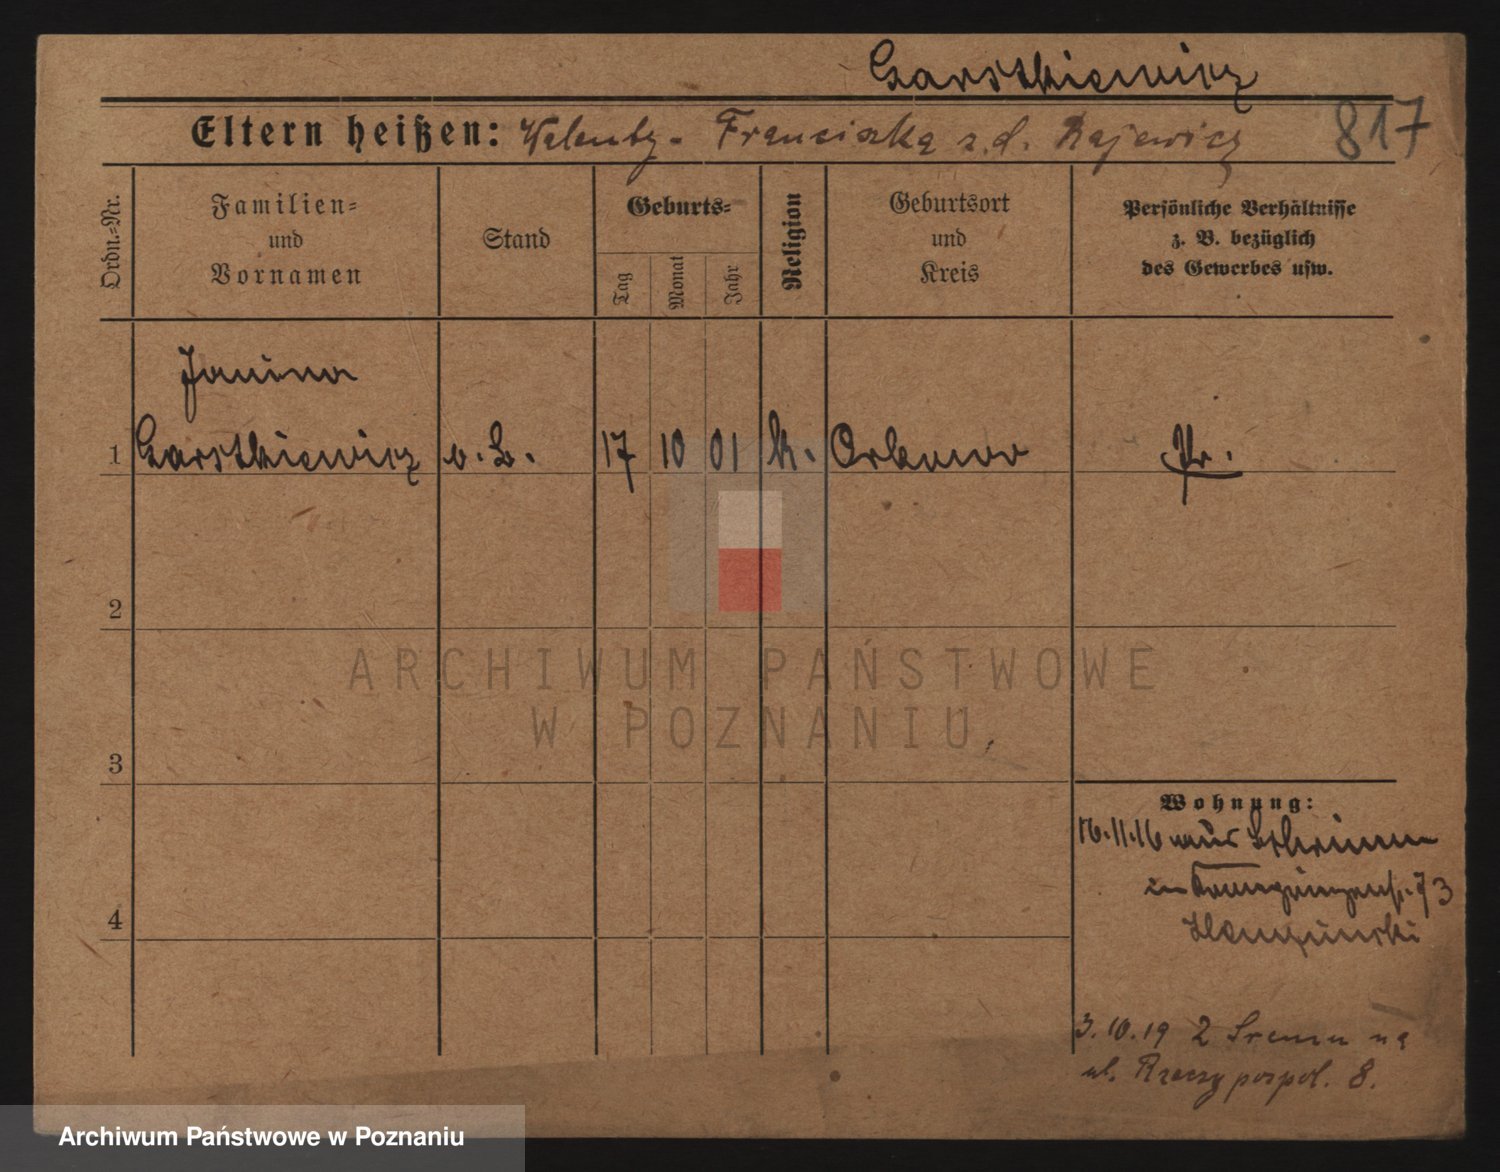 Garstkiewicz
Eltern heißen: Walenty - Franciszka z.d. Rajewicz 817
Ordn.=Nr.
Familien=
und
Vornamen
Stand
Geburts=
Tag
Monat
Jahr
Religion
Geburtsort
und
Kreis
Persönliche Verhältnisse
z. B. bezüglich
des Gewerbes usw.
Janina
1 Garstkiewicz o. B. 17 10 01 k. Orkowo Pr.
2
ARCHIWUM PAŃSTWOWE
W POZNANIU
3
Wohnung:
16.11.16 aus Schrimm
in 73
4
3.10.19 Z Śremu na
ul. Rzeczypospol. 8.
Archiwum Państwowe w Poznaniu